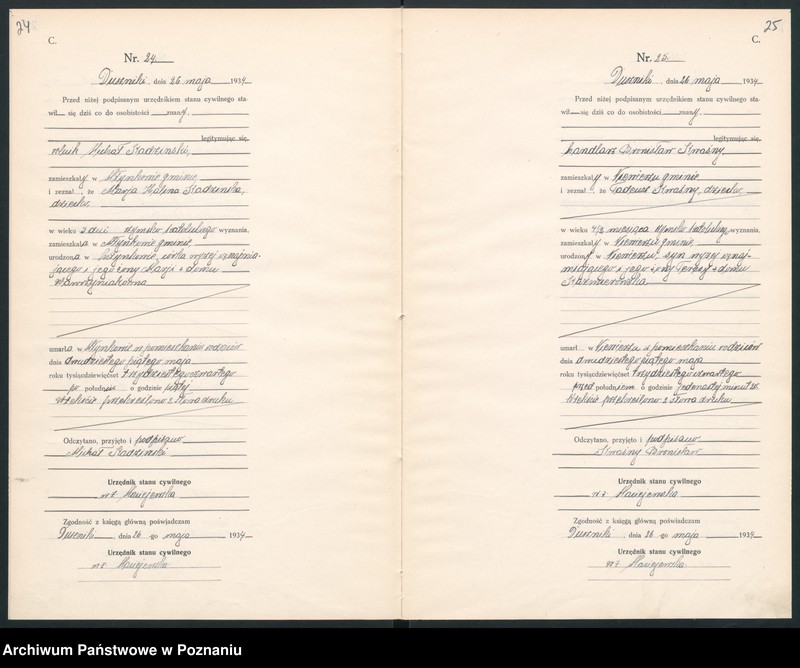 24
C.
Nr. 24
Duszniki, dnia 26 maja 1934
Przed niżej podpisanym urzędnikiem stanu cywilnego sta-
wił się dziś co do osobistości znany,
legitymując się
Michał Kadziński,
zamieszkały w Młynkowie gminie
i zeznał, że Marja Helena Kadzińska,
dziecko
w wieku 2 dni rzymsko katolickiego wyznania,
zamieszkała w Młynkowie gminie,
urodzona w córka wyżej zeznają-
jącego i jego żony Marji z domu
umarła w Młynkowie w pomieszkaniu rodziców
dnia dwudziestego piątego maja
roku tysiącdziewięćset trzydziestego czwartego
po południu o godzinie piątej
przekreślono 2 słowa druku
Odczytano, przyjęto i podpisano
Michał Kadziński
Urzędnik stanu cywilnego
wz. Maciejewska
Zgodność z księgą główną poświadczam
Duszniki, dnia 26-go maja 1934
Urzędnik stanu cywilnego
wz. Maciejewska
25
C.
Nr. 25
Duszniki, dnia 26 maja 1934
Przed niżej podpisanym urzędnikiem stanu cywilnego sta-
wił się dziś co do osobistości znany,
legitymując się
handlarz Bronisław Kwaśny
zamieszkały w gminie
i zeznał, że Tadeusz Kwaśny, dziecko
w wieku miesiąca rzymsko katolickiego wyznania,
zamieszkały w gminie,
urodzony w syn wyżej zezna-
miającego i jego żony Teresy z domu
Kaźmierowska
umarł w w pomieszkaniu rodziców
dnia dwudziestego piątego maja
roku tysiącdziewięćset trzydziestego czwartego
przed południem o godzinie jedenastej minut
przekreślono 2 słowa druku
Odczytano, przyjęto i podpisano
Kwaśny Bronisław
Urzędnik stanu cywilnego
wz. Maciejewska
Zgodność z księgą główną poświadczam
Duszniki, dnia 26-go maja 1934
Urzędnik stanu cywilnego
wz. Maciejewska
Archiwum Państwowe w Poznaniu